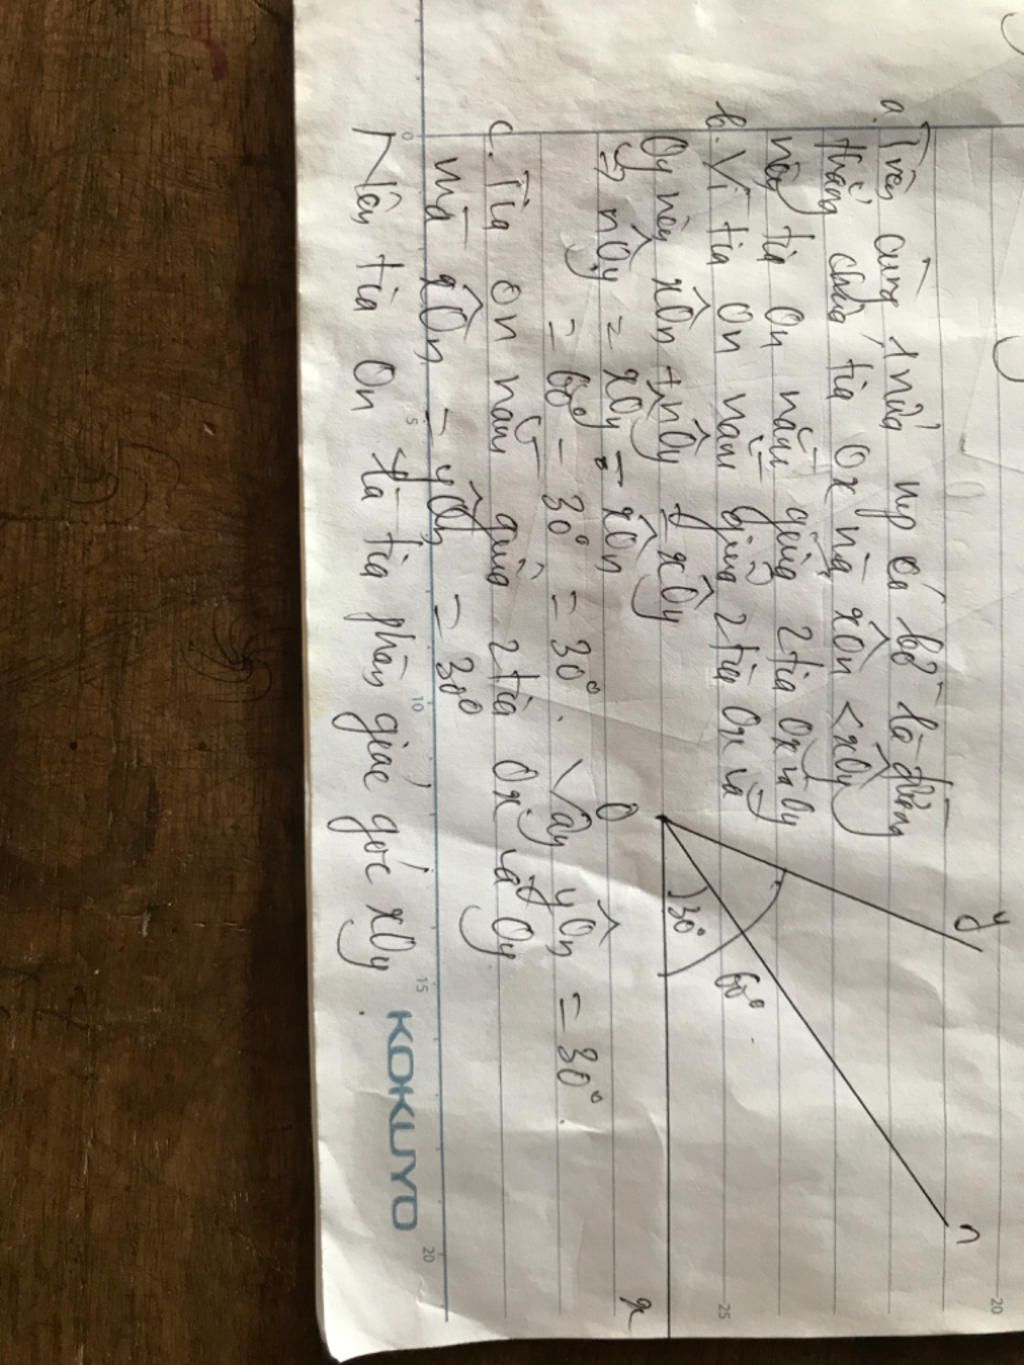 a. Trên cùng 1 nửa mp có bờ là đường
thẳng chứa tia Ox mà xÔn < xÔy
nên tia On nằm giữa 2 tia Ox và Oy
b. Vì tia On nằm giữa 2 tia Ox và
Oy nên xÔn + nÔy = xÔy
=> nÔy = xÔy - xÔn
= 60° - 30° = 30°. Vậy yÔn = 30°.
c. Tia On nằm giữa 2 tia Ox và Oy
mà xÔn = yÔn = 30°
Nên tia On là tia phân giác góc xOy.
y
O
30°
60°
n
x
0
5
10
15
20
25
20
KOKUYO